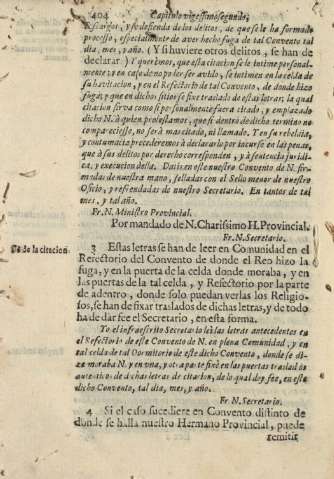 404 Capitulo vigessimosegundo,
descargos, y se defienda de los delitos, de que se le ha formado
processo, especialmente de aver hecho fuga de tal Convento tal
dia, mes, y año. (Y si huviere otros delitos, se han de
declarar.) Y queremos, que esta citacion se le intime personal-
mente; y en caso de no poder ser avido, se intimen en la celda de
su havitacion, y en el Refectorio de tal Convento, de donde hizo
fuga, y que en dichos sitios se fixe traslado de estas letras; la qual
citacion sirva como si personalmente fuera citado, y emplazado
dicho N. à quien protestamos, que si dentro de dicho termino no
compareciesse, no serà mas citado, ni llamado. Y en su rebeldia,
y contumacia procederemos à declararlo por incurso en las penas,
que à sus delitos por derecho corresponden, y à sentencia juridi-
ca, y execucion de ella. Dadas en este nuestro Convento de N. fir-
madas de nuestra mano, selladas con el Sello menor de nuestro
Oficio, y refrendadas de nuestro Secretario. En tantos de tal
mes, y tal año.
Fr. N. Ministro Provincial.
Por mandado de N. Charissimo H. Provincial.
Fr. N. Secretario.
De la citacion.
3 Estas letras se han de leer en Comunidad en el
Refectorio del Convento de donde el Reo hizo la
fuga, y en la puerta de la celda donde moraba, y en
las puertas de la tal celda, y Refectorio por la parte
de adentro, donde solo puedan verlas los Religio-
sos, se han de fixar traslados de dichas letras, y de todo
ha de dar fee el Secretario, en esta forma.
Yo el infraescrito Secretario leì las letras antecedentes en
el Refectorio de este Convento de N. en plena Comunidad, y en
tal celda de tal Dormitorio de este dicho Convento, donde se di-
ze moraba N. y en una, y otra parte fixè en las puertas traslado
autentico de dichas letras de citacion, de lo qual doy fee, en este
dicho Convento, tal dia, mes, y año.
Fr. N. Secretario.
4 Si el caso sucediere en Convento distinto de
donde se halla nuestro Hermano Provincial, puede
remitir